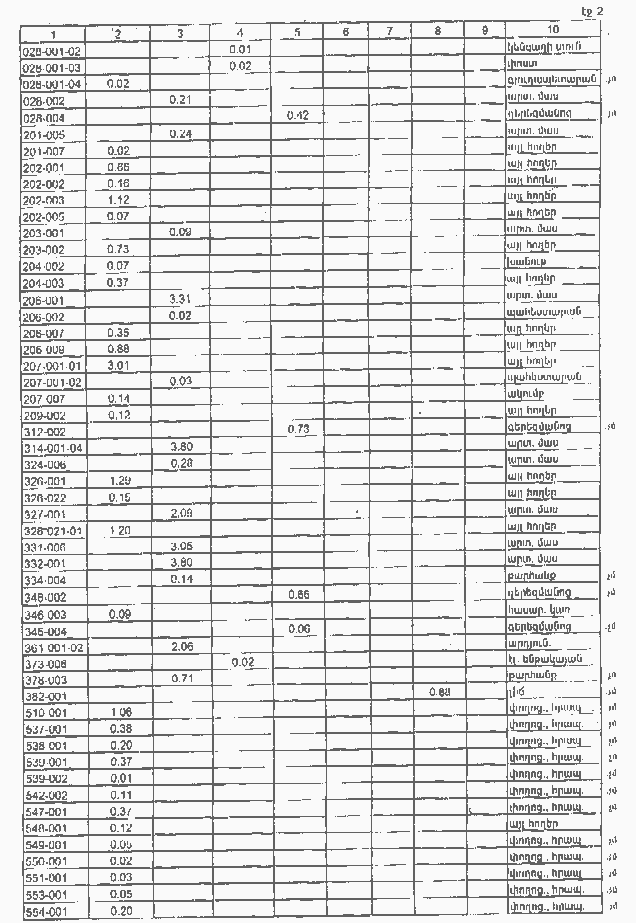 էջ 2
1 2 3 4 5 6 7 8 9 10
028-001-02 0.01 կենցաղի տուն
028-001-03 0.02 փոստ
028-001-04 0.02 գյուղապետարան չմ
028-002 0.21 արտ. մաս
028-004 0.42 գերեզմանոց չմ
201-005 0.24 արտ. մաս
201-007 0.02 այլ հողեր
202-001 0.86 այլ հողեր
202-002 0.16 այլ հողեր
202-003 1.12 այլ հողեր
202-005 0.07 այլ հողեր
203-001 0.09 արտ. մաս
203-002 0.73 այլ հողեր
204-002 0.07 խանութ
204-003 0.37 այլ հողեր
205-001 3.31 արտ. մաս
206-002 0.02 պահեստարան
206-007 0.35 այլ հողեր
206-009 0.88 այլ հողեր
207-001-01 3.01 այլ հողեր
207-001-02 0.03 պահեստարան
207-007 0.14 ակումբ
209-002 0.12 այլ հողեր
312-002 0.73 գերեզմանոց չմ
314-001-04 3.80 արտ. մաս
324-006 0.28 արտ. մաս
326-001 1.29 այլ հողեր
326-022 0.15 այլ հողեր
327-001 2.09 արտ. մաս
328-021-01 1.20 այլ հողեր
331-006 3.05 արտ. մաս
332-001 3.80 արտ. մաս
334-004 0.14 քարհանք չմ
345-002 0.86 գերեզմանոց չմ
346-003 0.09 հասար. կառ
345-004 0.06 գերեզմանոց չմ
361-001-02 2.06 արդյուն.
373-008 0.02 էլ. ենթակայան
378-003 0.71 քարհանք չմ
382-001 0.88 լիճ չմ
510-001 1.06 փողոց., հրապ. չմ
537-001 0.38 փողոց., հրապ. չմ
538-001 0.20 փողոց., հրապ. չմ
539-001 0.37 փողոց., հրապ. չմ
539-002 0.01 փողոց., հրապ. չմ
542-002 0.11 փողոց., հրապ. չմ
547-001 0.37 փողոց., հրապ. չմ
548-001 0.12 այլ հողեր
549-001 0.05 փողոց., հրապ. չմ
550-001 0.02 փողոց., հրապ. չմ
551-001 0.03 փողոց., հրապ. չմ
553-001 0.05 փողոց., հրապ. չմ
554-001 0.20 փողոց., հրապ. չմ